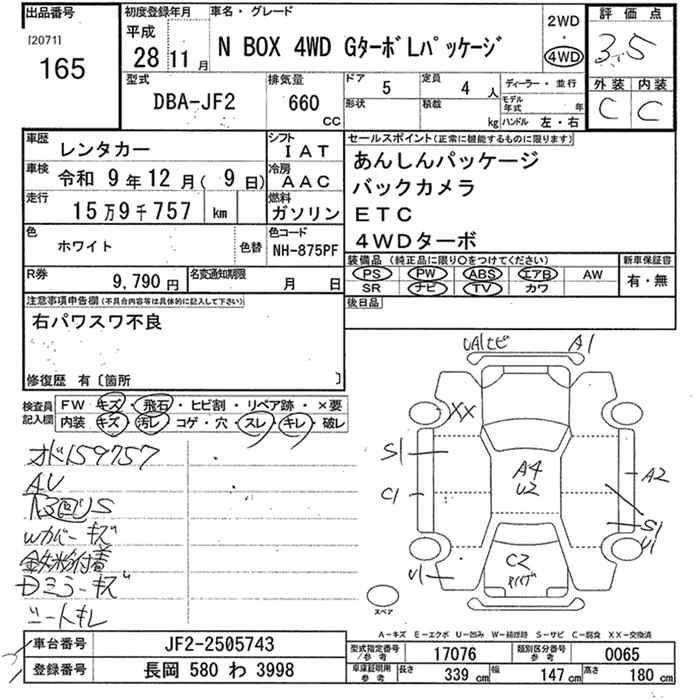 出品番号
[2071]
165
初度登録年月
平成
28年11月
車名・グレード
N BOX 4WD GターボLパッケージ
2WD
・
4WD
評価点
3.5
外装 内装
C C
型式
DBA-JF2
排気量
660
CC
ドア 5
形状
定員 4 人
積載 kg
ディーラー・並行
モデル年式 年
ハンドル 左・右
車歴 レンタカー
シフト IAT
車検 令和 9年12月(9日)
冷房 AAC
走行 15万9千757 km
燃料 ガソリン
色 ホワイト 色替
色コード NH-875PF
R券 9,790円
名変通知期限 月 日
セールスポイント(正常に機能するものに限ります)
あんしんパッケージ
バックカメラ
ETC
4WDターボ
装備品(純正品に限り○をつけてください)
PS PW ABS エアB AW
SR ナビ TV カワ
新車保証書
有・無
後日品
注意事項申告欄(不具合内容等は具体的に記入して下さい)
右パワスワ不良
修復歴 有〔箇所 〕
検査員記入欄
FW キズ・飛石・ヒビ割・リペア跡・×要
内装 キズ・汚レ・コゲ・穴・スレ・キレ・破レ
オド159757
AU
Wカバーキズ
鉄粉付着
Dミラーキズ
シートキレ
UA1ヒビ A1
XX
S1
C1
A4
U2
A2
S1
U1
U1
C2
スペア
A-キズ E-エクボ U-凹み W-補修跡 S-サビ C-腐食 XX-交換済
車台番号 JF2-2505743
登録番号 長岡 580 わ 3998
型式指定番号/参考 17076
類別区分番号/参考 0065
車庫証明用/参考 長さ 339 cm 幅 147 cm 高さ 180 cm